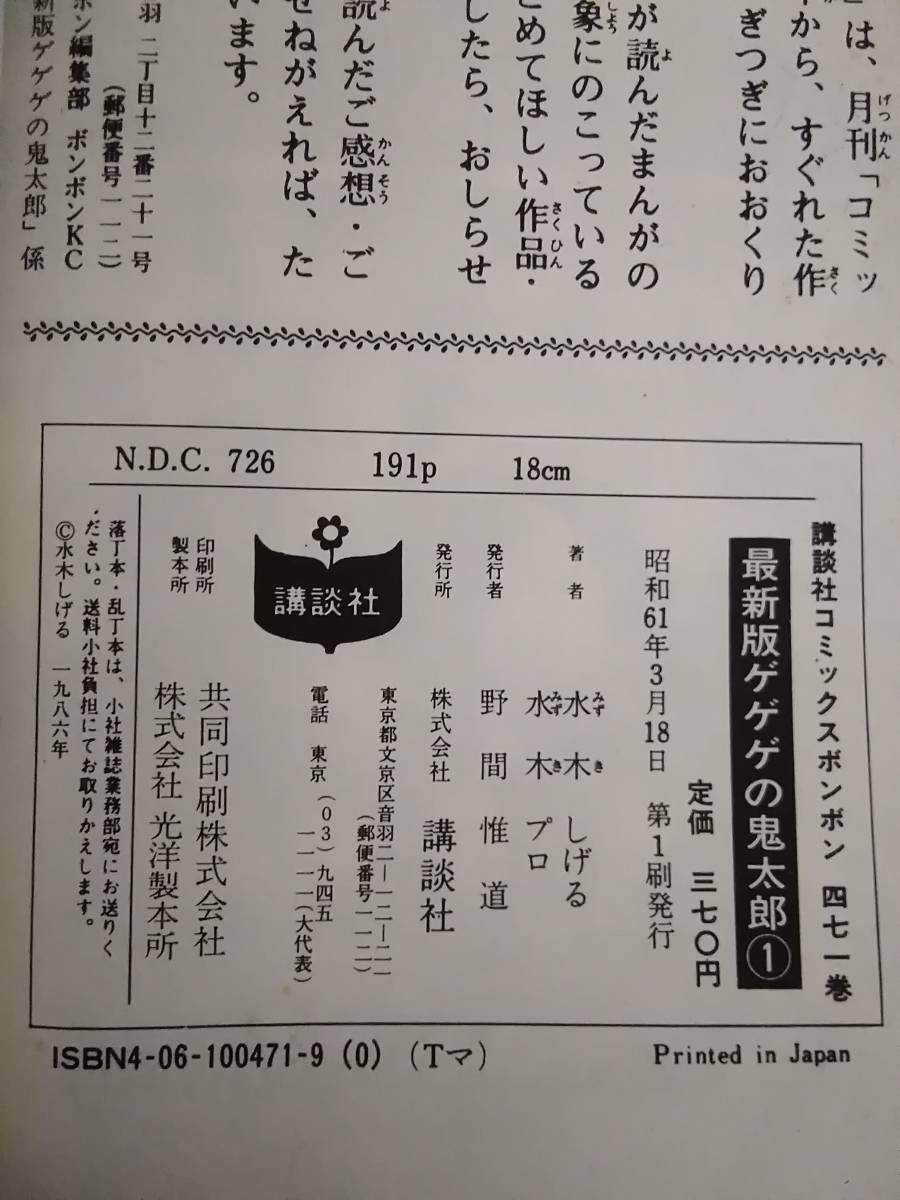 』は、月刊「コミッ
から、すぐれた作
ぎつぎにおおくり
が読んだまんがの
象にのこっている
とめてほしい作品・
したら、おしらせ
読んだご感想・ご
せねがえれば、た
います。
羽二丁目十二番二十一号
(郵便番号一一二)
ボン編集部 ボンボンKC
新版ゲゲゲの鬼太郎」係
N.D.C. 726 191p 18cm
講談社コミックスボンボン 四七一巻
最新版ゲゲゲの鬼太郎①
定価 三七〇円
昭和61年3月18日 第1刷発行
著者 水木しげる
水木プロ
発行者 野間惟道
発行所 株式会社 講談社
東京都文京区音羽二―一二―二一
(郵便番号一一二)
電話 東京(03)九四五
一一一一(大代表)
講談社
印刷所 共同印刷株式会社
製本所 株式会社 光洋製本所
落丁本・乱丁本は、小社雑誌業務部宛にお送りく
ださい。送料小社負担にてお取りかえします。
©水木しげる 一九八六年
ISBN4-06-100471-9 (0) (Tマ)
Printed in Japan